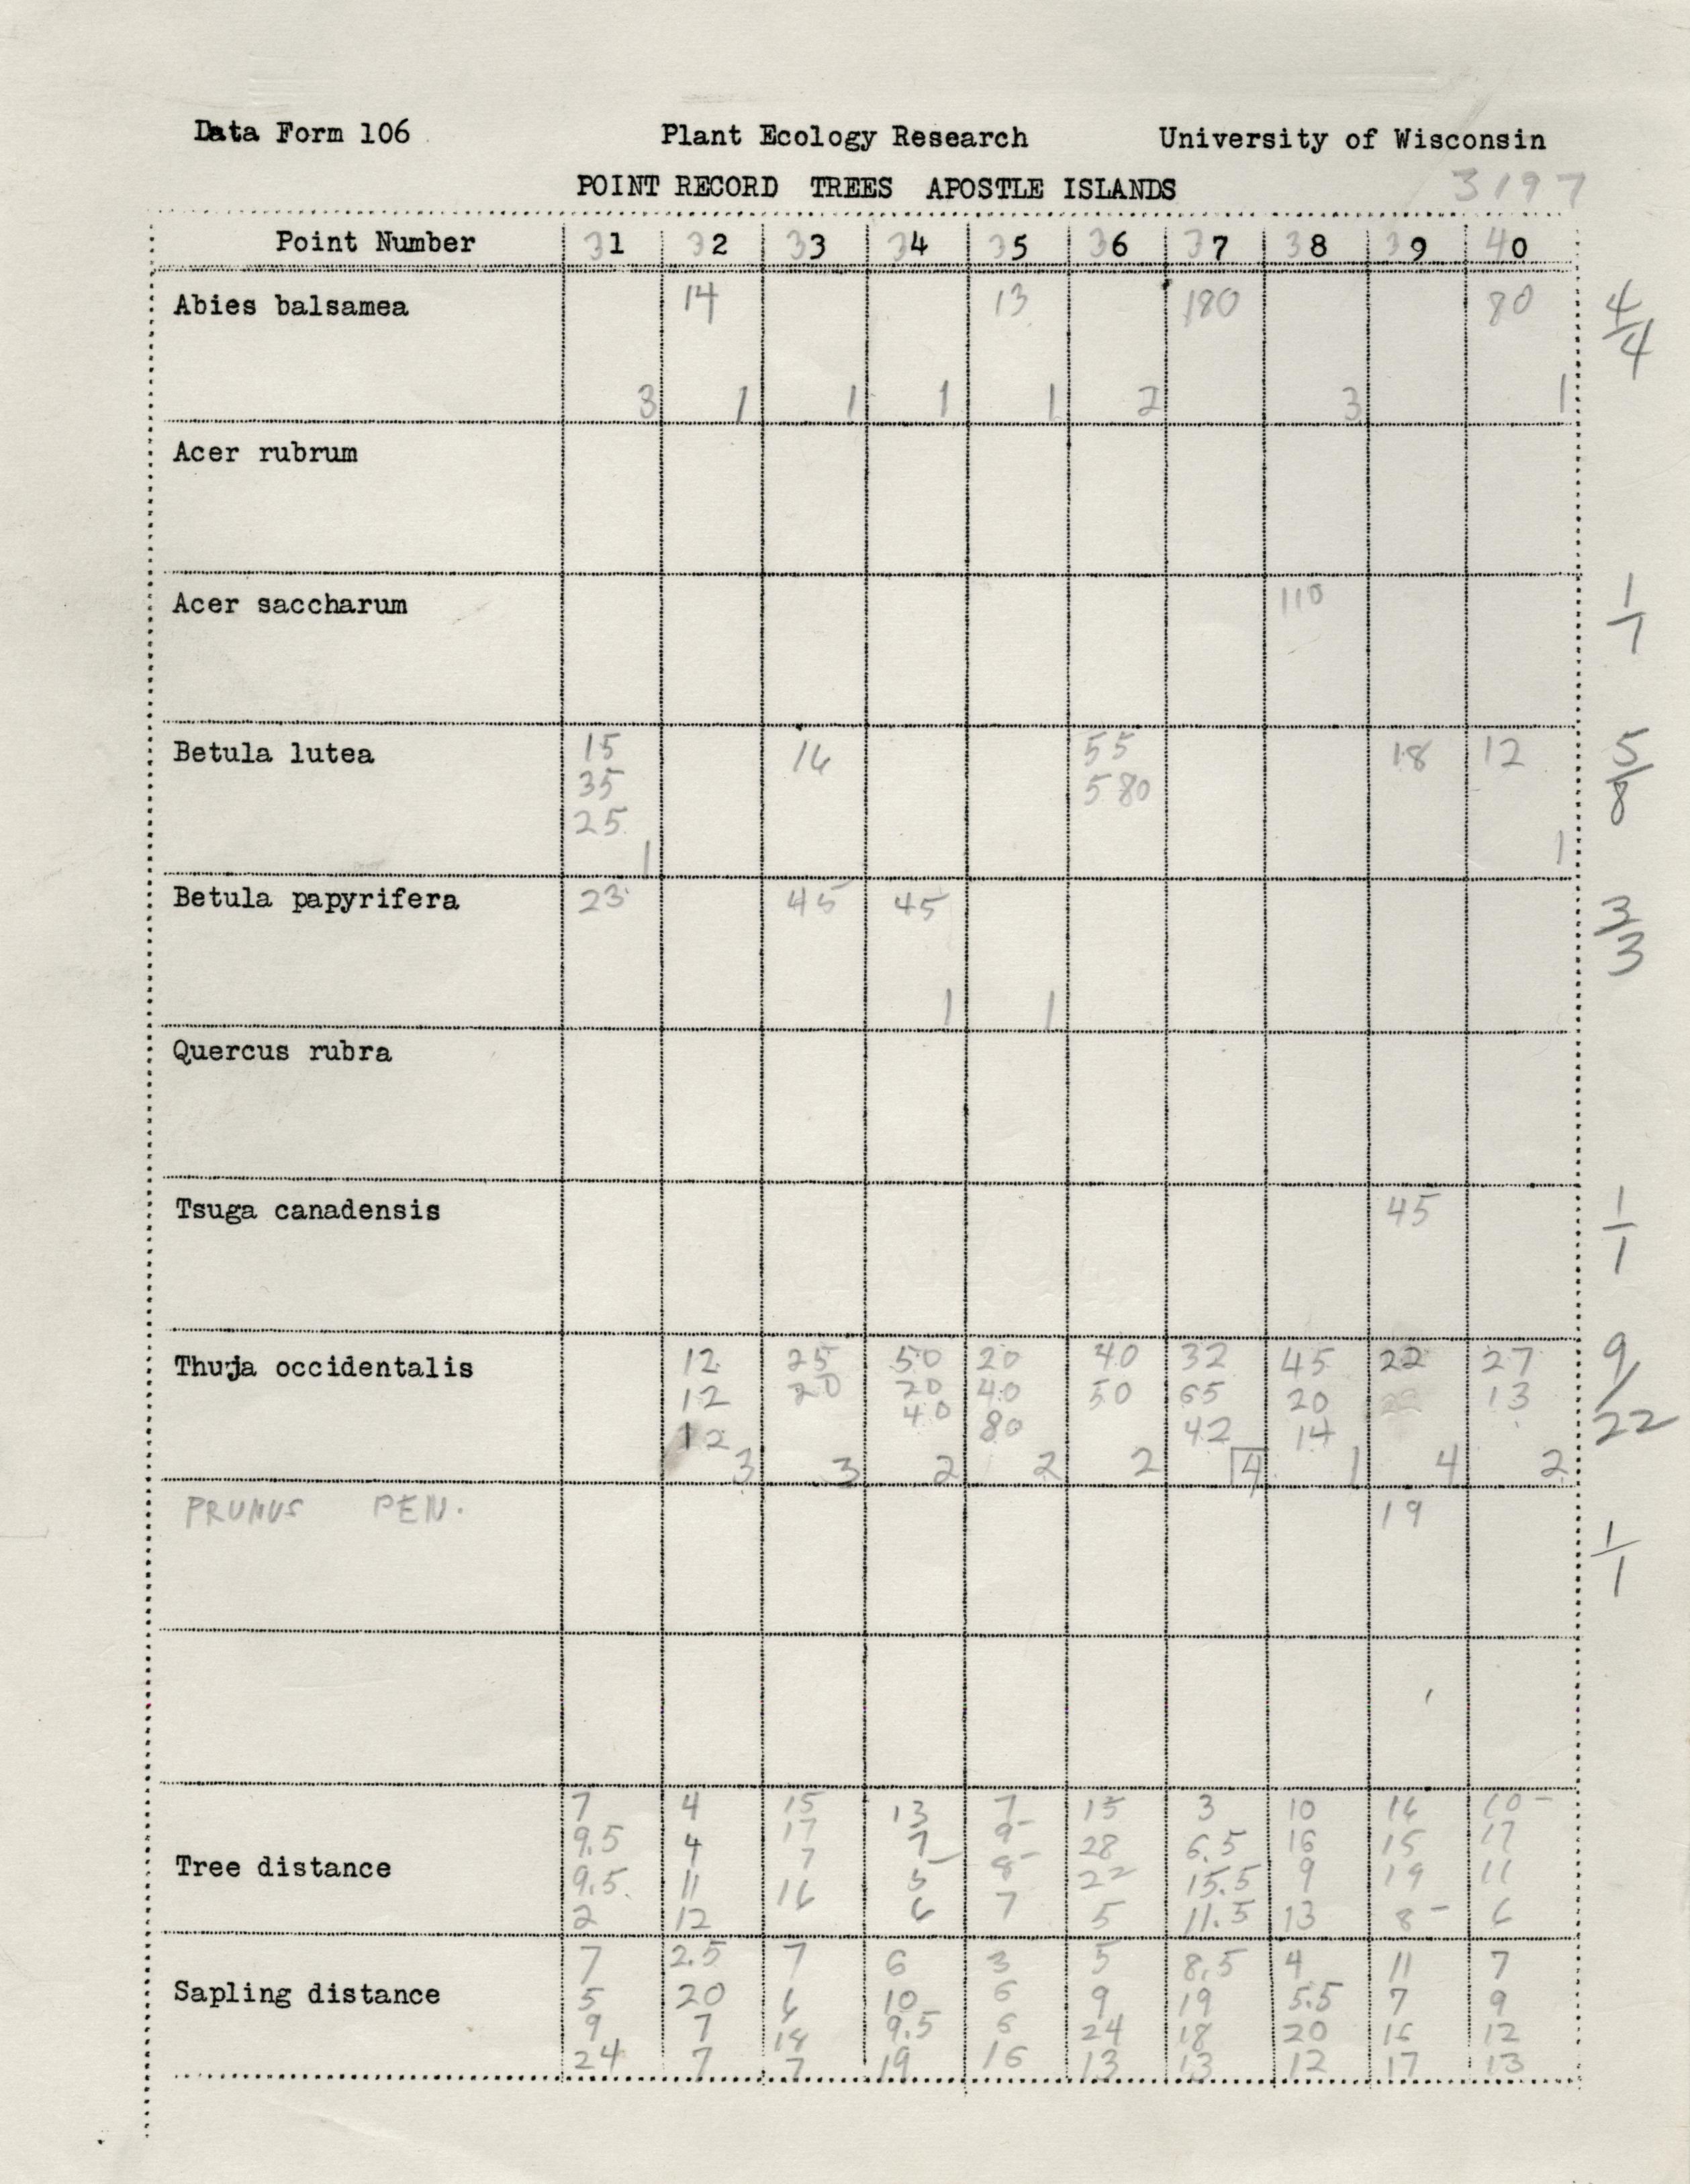 Data Form 106 Plant Ecology Research University of Wisconsin
POINT RECORD TREES APOSTLE ISLANDS 3197
Point Number 31 32 33 34 35 36 37 38 39 40
Abies balsamea 14 13 180 80 4/4
3 1 1 1 1 2 3 1
Acer rubrum
Acer saccharum 110 1/1
Betula lutea 15 16 55 18 12 5/8
35 580
25
1 1
Betula papyrifera 23 45 45 3/3
1 1
Quercus rubra
Tsuga canadensis 45 1/1
Thuja occidentalis 12 25 50 20 40 32 45 22 27 9/22
12 20 20 40 50 65 20 13
12 40 80 42 14
3 3 2 2 2 4 1 4 2
PRUNUS PEN. 19 1/1
7 4 15 13 7 15 3 10 16 10-
9.5 4 17 7 9- 28 6.5 16 15 17
Tree distance
9.5 11 7 5- 8- 22 15.5 9 19 11
2 12 16 6 7 5 11.5 13 8- 6
7 2.5 7 6 3 5 8.5 4 11 7
Sapling distance
5 20 6 10 6 9 19 5.5 7 9
9 7 18 9.5 6 24 18 20 16 12
24 7 7 19 16 13 13 12 17 13